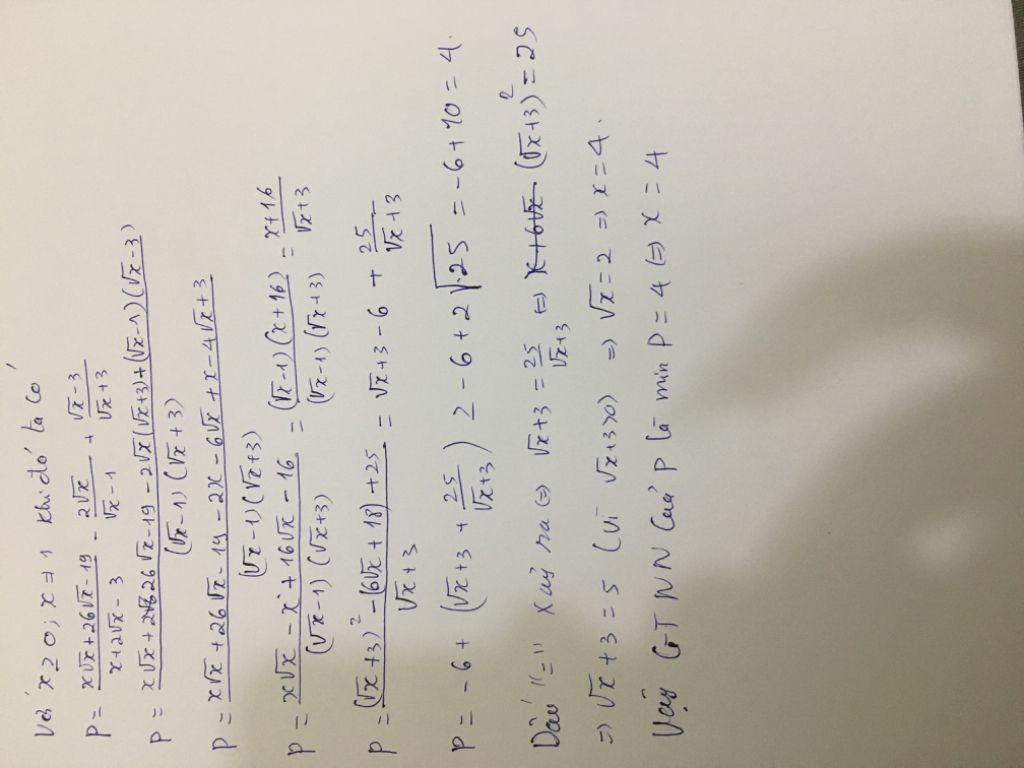 Với x ≥ 0; x ≠ 1 khi đó ta có
P = (x√x + 26√x - 19)/(x + 2√x - 3) - 2√x/(√x - 1) + (√x - 3)/(√x + 3)
P = (x√x + 26√x - 19 - 2√x(√x + 3) + (√x - 1)(√x - 3))/((√x - 1)(√x + 3))
P = (x√x + 26√x - 19 - 2x - 6√x + x - 4√x + 3)/((√x - 1)(√x + 3))
P = (x√x - x + 16√x - 16)/((√x - 1)(√x + 3)) = ((√x - 1)(x + 16))/((√x - 1)(√x + 3)) = (x + 16)/(√x + 3)
P = ((√x + 3)² - (6√x + 18) + 25)/(√x + 3) = √x + 3 - 6 + 25/(√x + 3)
P = -6 + (√x + 3 + 25/(√x + 3)) ≥ -6 + 2√25 = -6 + 10 = 4.
Dấu "=" xảy ra ⇔ √x + 3 = 25/(√x + 3) ⇔ (√x + 3)² = 25
⇒ √x + 3 = 5 (Vì √x + 3 > 0) ⇒ √x = 2 ⇒ x = 4.
Vậy GTNN Của P là min P = 4 ⇔ x = 4